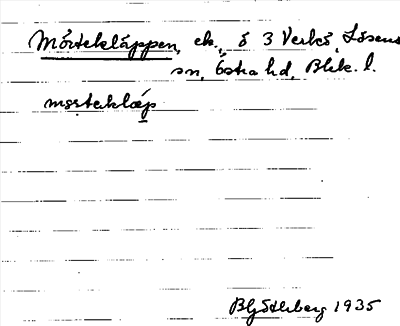 Mörtekläppen, ek., ö 3 Verkö, Lösens
sn, Östra hd, Blek. l.
mœrteklæp
Bg Öhlberg 1935